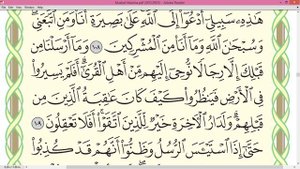 (SECURED) - Adobe Reader
هَٰذِهِۦ سَبِيلِىٓ أَدْعُوٓا۟ إِلَى ٱللَّهِ عَلَىٰ بَصِيرَةٍ أَنَا۠ وَمَنِ ٱتَّبَعَنِى
وَسُبْحَٰنَ ٱللَّهِ وَمَآ أَنَا۠ مِنَ ٱلْمُشْرِكِينَ ١٠٨ وَمَآ أَرْسَلْنَا مِن
قَبْلِكَ إِلَّا رِجَالًا نُّوحِىٓ إِلَيْهِم مِّنْ أَهْلِ ٱلْقُرَىٰٓ أَفَلَمْ يَسِيرُوا۟
فِى ٱلْأَرْضِ فَيَنظُرُوا۟ كَيْفَ كَانَ عَٰقِبَةُ ٱلَّذِينَ مِن
قَبْلِهِمْ وَلَدَارُ ٱلْءَاخِرَةِ خَيْرٌ لِّلَّذِينَ ٱتَّقَوْا۟ أَفَلَا تَعْقِلُونَ ١٠٩
حَتَّىٰٓ إِذَا ٱسْتَيْـَٔسَ ٱلرُّسُلُ وَظَنُّوٓا۟ أَنَّهُمْ قَدْ كُذِبُوا۟